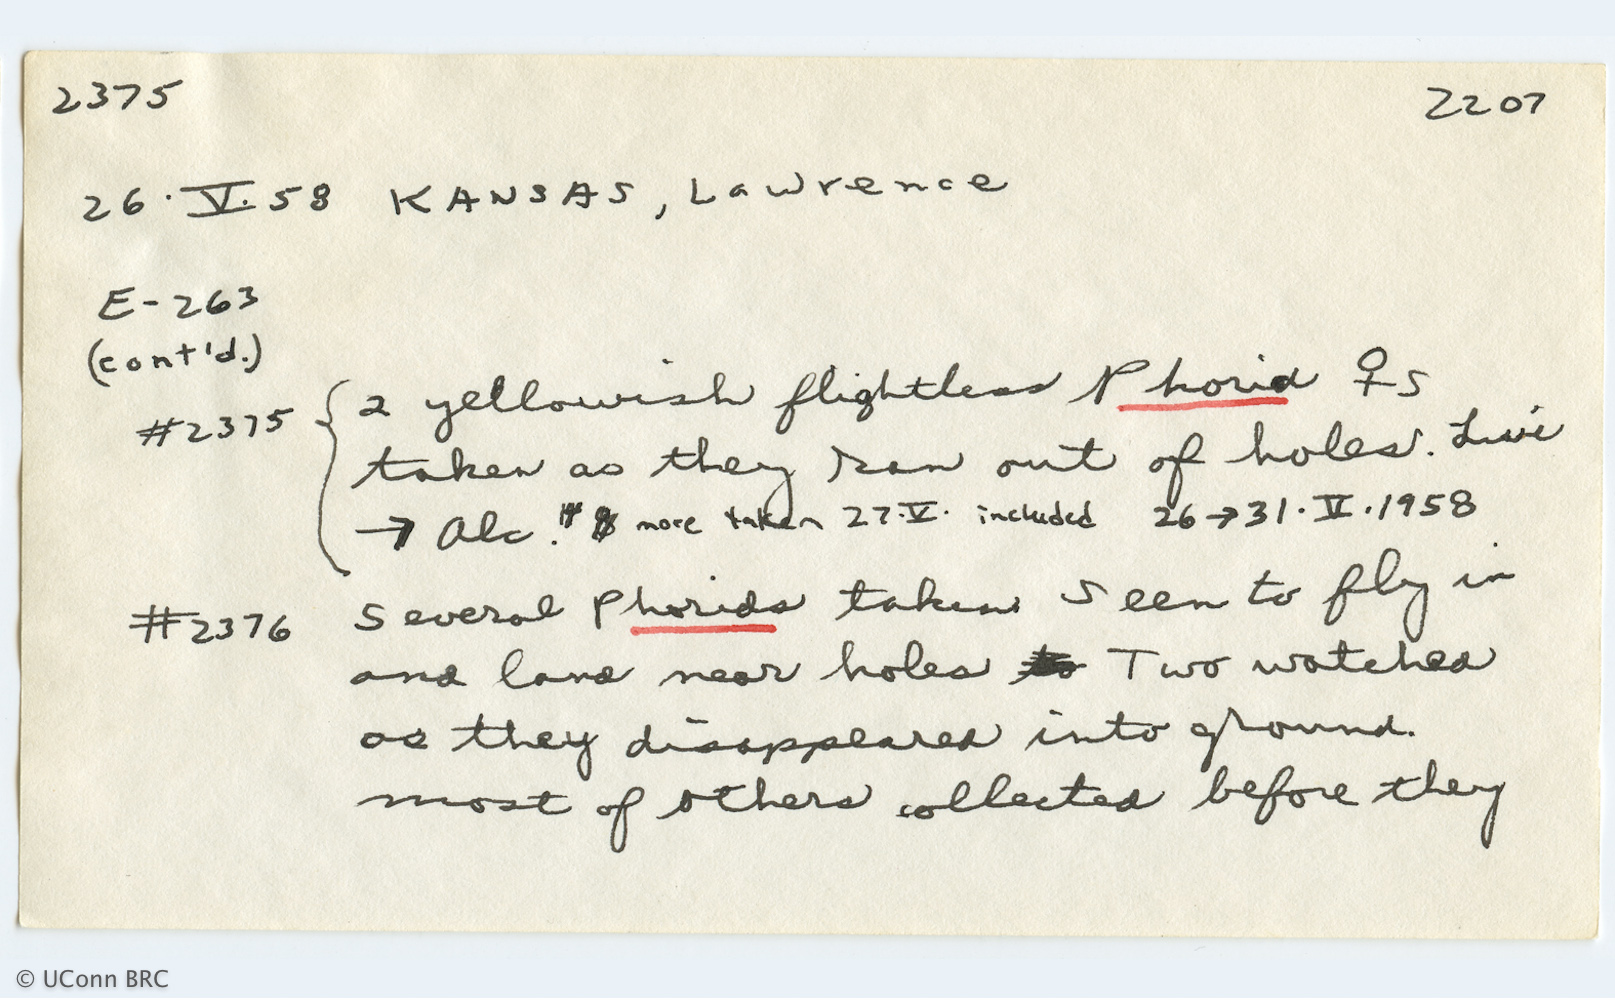 2375 2207
26·V·58 KANSAS, Lawrence
E-263
(cont'd.)
#2375 { 2 yellowish flightless Phorid ♀s
taken as they ran out of holes. Live
→ Alc. more taken 27·V· included 26→31·V·1958
#2376 Several Phorids taken seen to fly in
and land near holes Two watched
as they disappeared into ground.
most of others collected before they
© UConn BRC